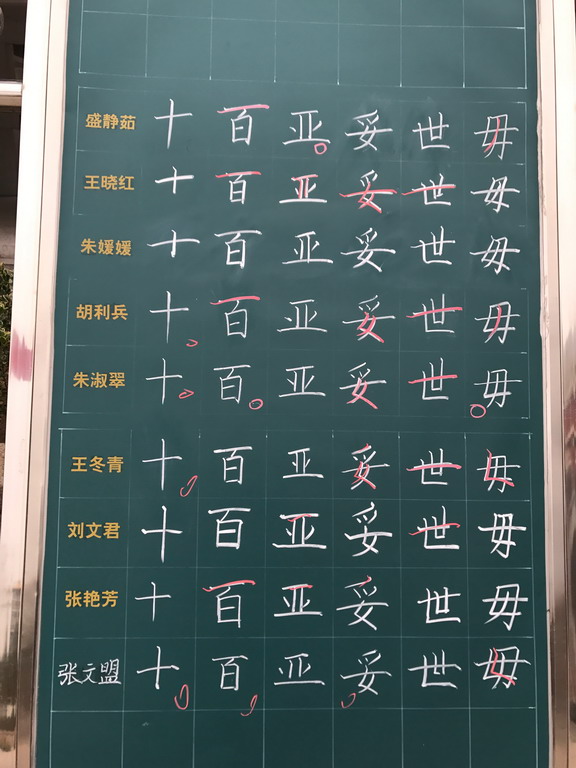 盛静茹 十 百 亚 妥 世 毋
王晓红 十 百 亚 妥 世 毋
朱媛媛 十 百 亚 妥 世 毋
胡利兵 十 百 亚 妥 世 毋
朱淑翠 十 百 亚 妥 世 毋
王冬青 十 百 亚 妥 世 毋
刘文君 十 百 亚 妥 世 毋
张艳芳 十 百 亚 妥 世 毋
张文盟 十 百 亚 妥 世 毋